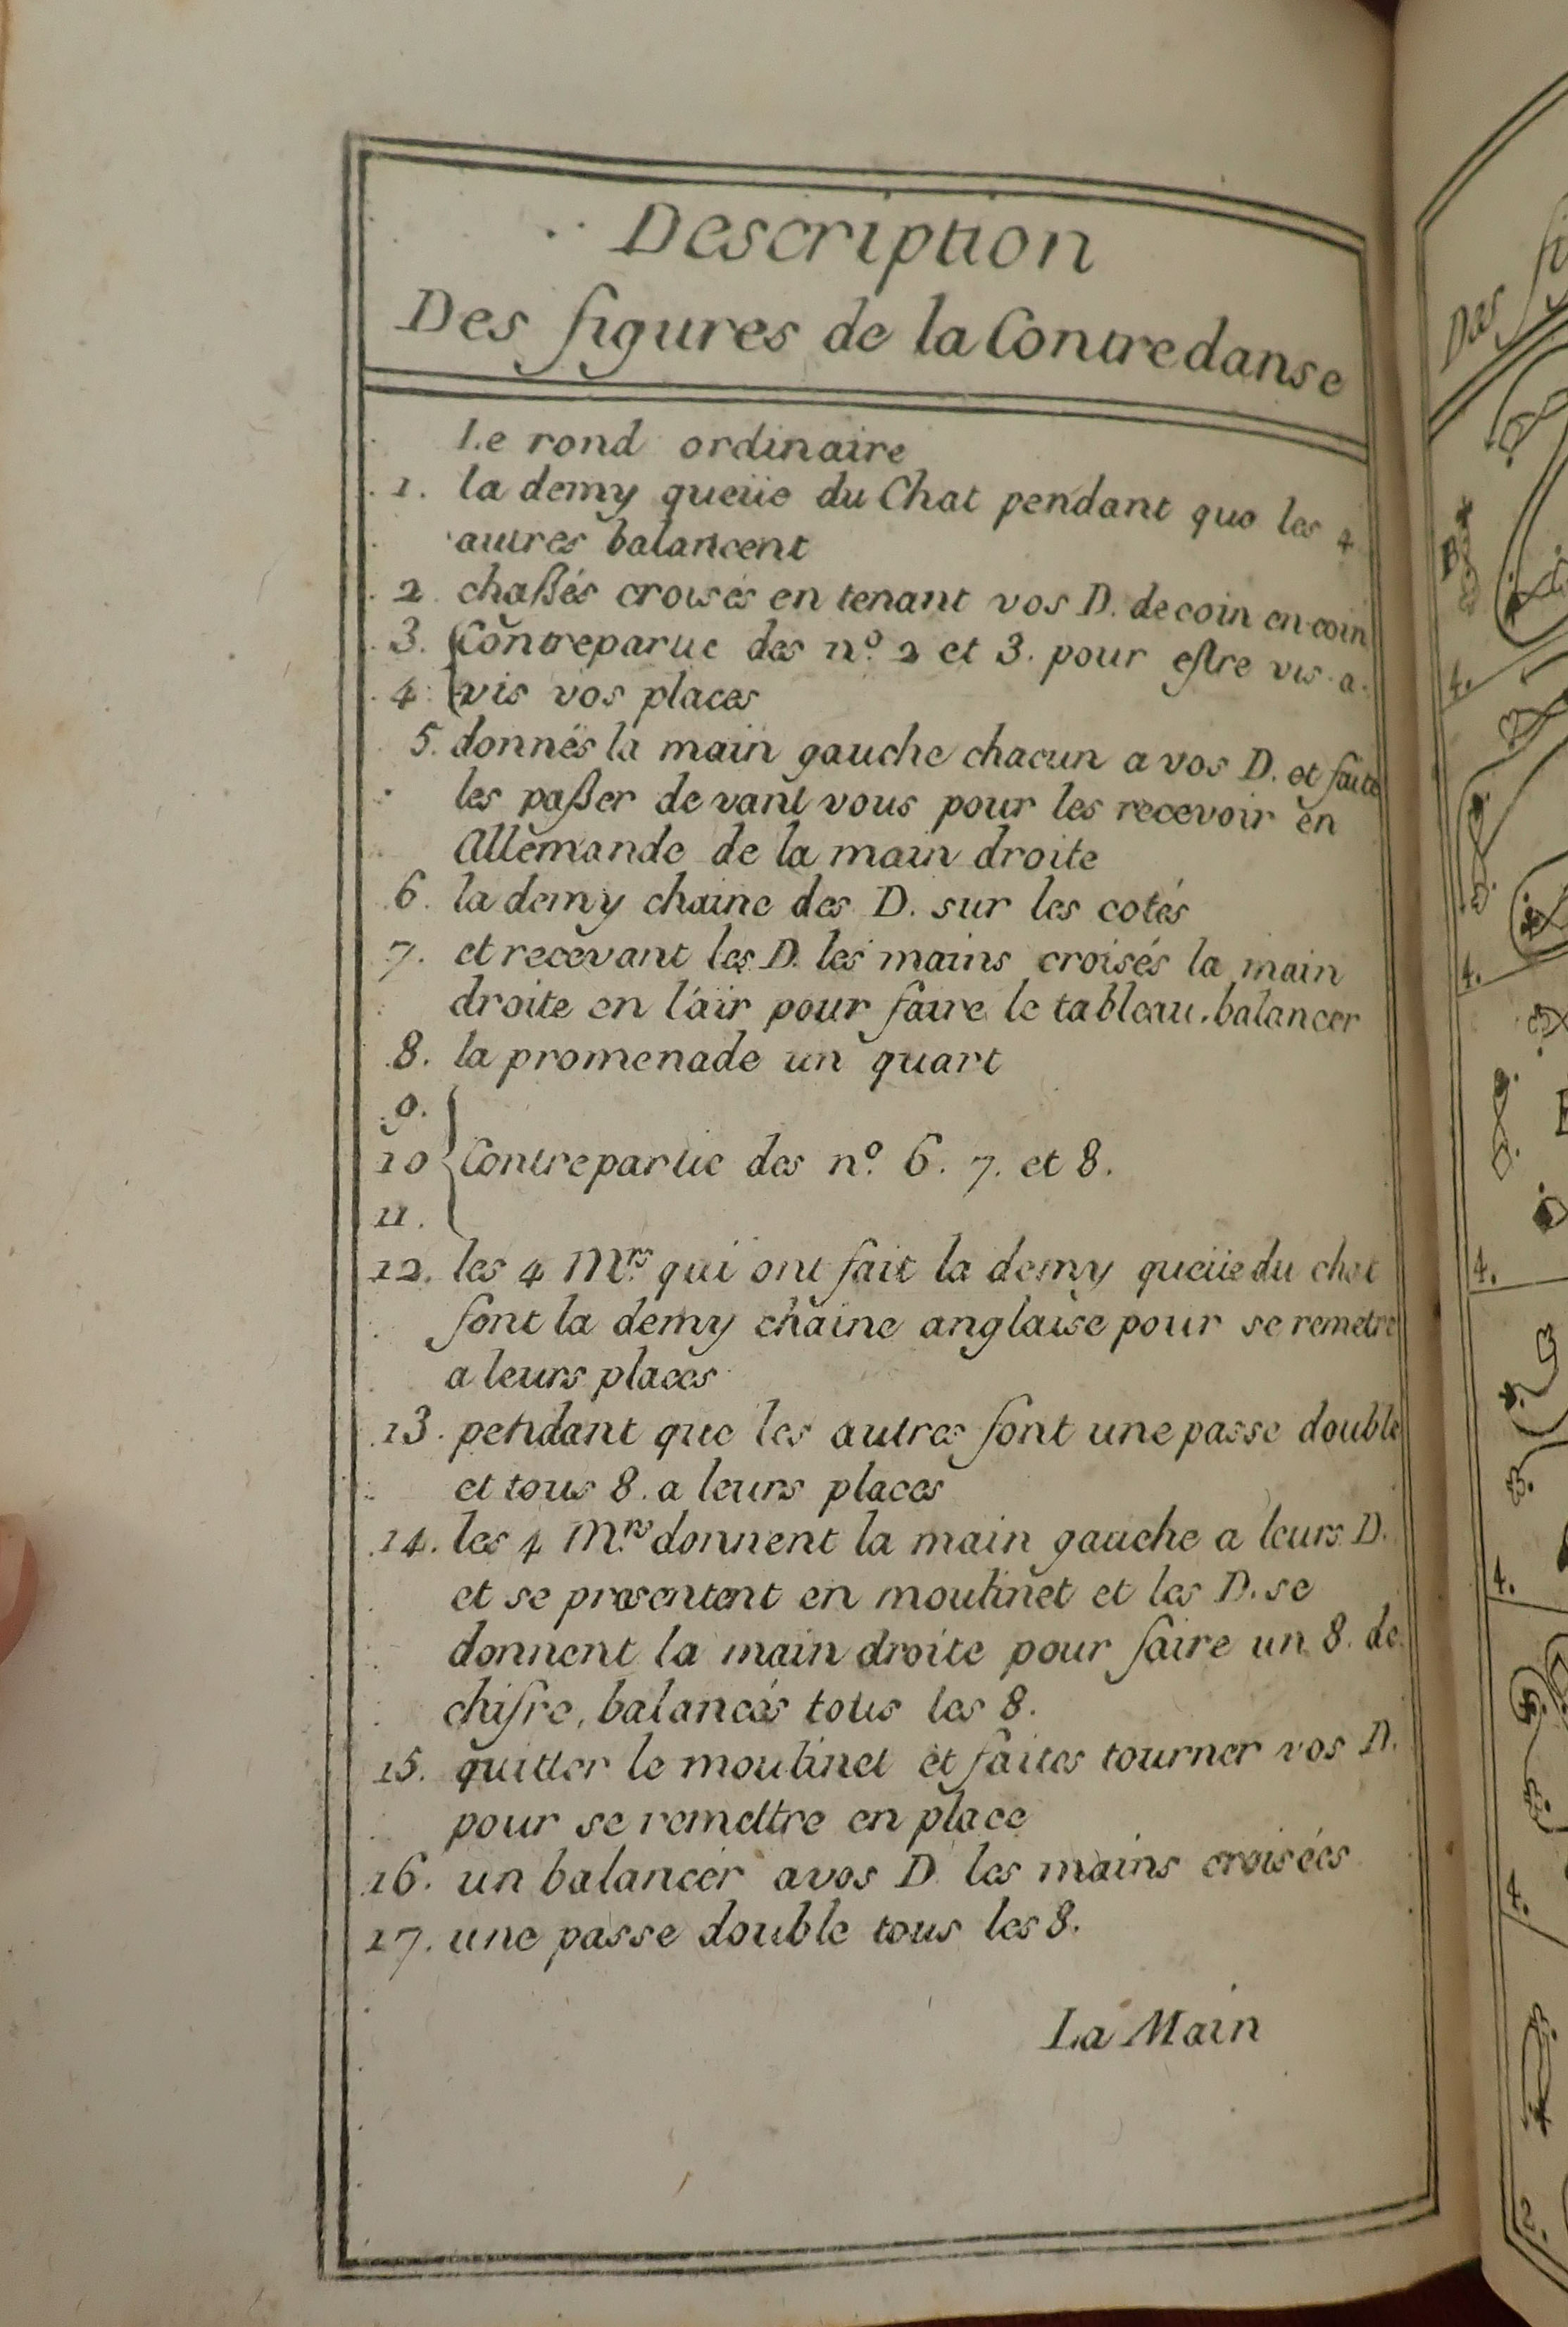 Description
Des figures de la Contredanse
Le rond ordinaire
1. la demy queüe du Chat pendant que les 4
autres balancent
2 chaßés croisés en tenant vos D. de coin en coin
3. Contrepartie des nº. 2 et 3. pour estre vis-a-
4. vis vos places
5. donnés la main gauche chacun a vos D. et faite
les paßer devant vous pour les recevoir en
Allemande de la main droite
6. la demy chaine des D. sur les cotés
7. et recevant les D. les mains croisés la main
droite en l'air pour faire le tableau. balancer
8. la promenade un quart
9.
10 Contrepartie des nº. 6. 7. et 8.
11.
12. les 4 Mrs. qui ont fait la demy queüe du chat
font la demy chaine anglaise pour se remetre
a leurs places
13. pendant que les autres font une passe double
et tous 8. a leurs places
14. les 4 Mrs. donnent la main gauche a leurs D.
et se presentent en moulinet et les D. se
donnent la main droite pour faire un 8. de
chifre, balancés tous les 8.
15. quitter le moulinet et faites tourner vos D.
pour se remettre en place
16. un balancer a vos D. les mains croisées
17. une passe double tous les 8.
La Main
Des
B
4.
4.
4.
4.
4.
2.